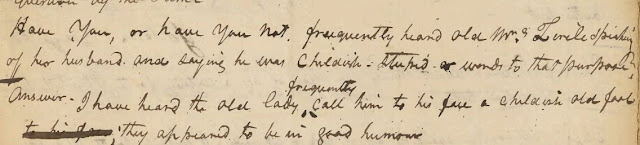 Question by the Same
Have You, or have You not. frequently heard old Mrs. Zevele speaking
of her husband. and saying he was Childish - Stupid. or words to that purpose
frequently
Answer - I have heard the old lady, call him to his face a childish old fool
to his face, they appeared to be in good humour